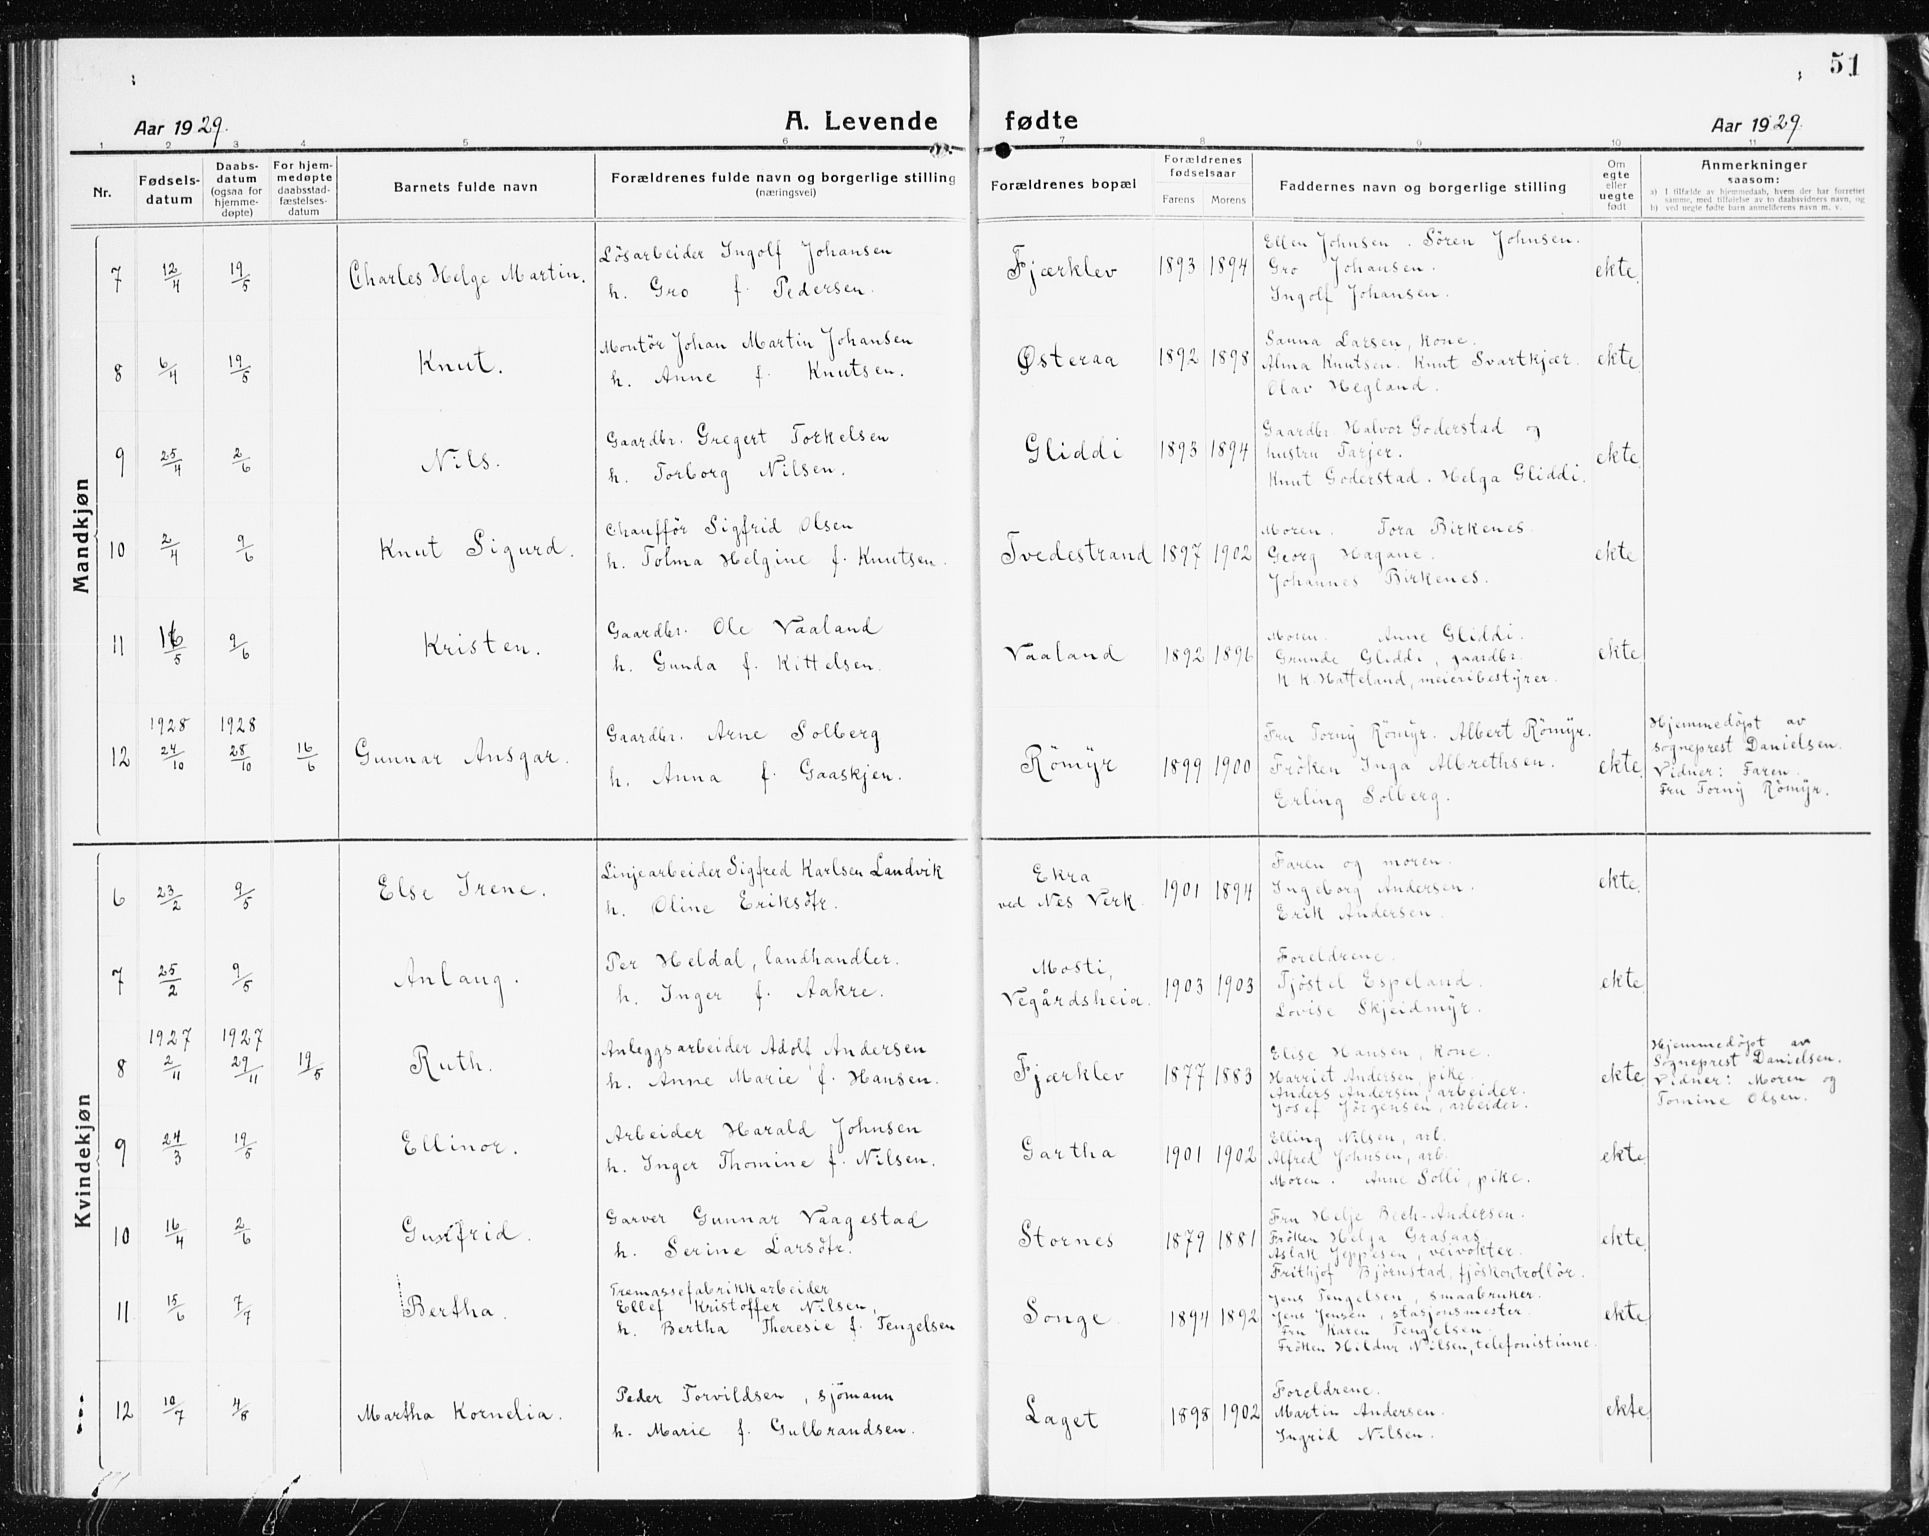 51
Aar 1929.
A. Levende fødte
Aar 1929.
1 2 3 4 5 6 7 8 9 10 11
Nr.
Fødsels-
datum
Daabs-
datum
(ogsaa for
hjemme-
døpte)
For hjem-
medøpte
daabsstad-
fæstelses-
datum
Barnets fulde navn
Forældrenes fulde navn og borgerlige stilling
(næringsvei)
Forældrenes bopæl
Forældrenes
fødselsaar
Farens Morens
Faddernes navn og borgerlige stilling
Om
egte
eller
uegte
født
Anmerkninger
saasom:
a) I tilfælde av hjemmedaab, hvem der har forrettet
samme, med tilføielse av to daabsvidners navn, og
b) ved uegte fødte barn anmelderens navn m. v.
Mandkjøn
7 12/4 19/5 Charles Helge Martin.
Løsarbeider Ingolf Johansen
h. Gro f. Pedersen.
Fjærklev 1893 1894
Ellen Johnsen. Sören Johnsen.
Gro Johansen.
Ingolf Johansen.
ekte
8 6/4 19/5 Knut.
Montör Johan Martin Johansen
h. Anne f. Knutsen.
Østeraa 1892 1898
Sanna Larsen, kone.
Alma Knutsen. Knut Svartkjær.
Olav Hegland.
ekte
9 25/4 2/6 Nils.
Gaardbr. Gregert Torkelsen
h. Torborg Nilsen.
Gliddi 1893 1894
Gaardbr. Halvor Goderstad og
hustru Tarjer.
Knut Goderstad. Helga Gliddi.
ekte
10 2/4 9/6 Knut Sigurd.
Chaufför Sigfrid Olsen
h. Tolma Helgine f. Knutsen.
Tvedestrand 1897 1902
Moren. Tora Birkenes.
Georg Hagane.
Johannes Birkenes.
ekte
11 16/5 9/6 Kristen.
Gaardbr. Ole Vaaland
h. Gunda f. Kittelsen.
Vaaland 1892 1896
Moren. Anne Gliddi.
Grunde Gliddi, gaardbr.
K. K. Hatteland, meieribestyrer.
ekte
1928 1928
12 24/10 28/10 16/6 Gunnar Ansgar.
Gaardbr. Arne Solberg
h. Anna f. Gaaskjen.
Römyr 1899 1900
Fru Torny Römyr. Albert Römyr.
Fröken Inga Albrethsen.
Erling Solberg.
ekte
Hjemmedøpt av
sogneprest Danielsen.
Vidner: Faren.
Fru Torny Römyr.
Kvindekjøn
6 23/2 9/5 Else Irene.
Linjearbeider Sigfred Karlsen Landvik
h. Oline Eriksdtr.
Ekra
ved Nes Verk. 1901 1894
Faren og moren.
Ingeborg Andersen.
Erik Andersen.
ekte
7 25/2 9/5 Anlaug.
Per Heldal, landhandler.
h. Inger f. Aakre.
Mosti,
Vegårdsheia. 1903 1903
Foreldrene.
Tjöstel Espeland.
Lovise Skjeidmyr.
ekte
1927 1927
8 2/11 29/11 19/5 Ruth.
Anleggsarbeider Adolf Andersen
h. Anne Marie f. Hansen.
Fjærklev 1877 1883
Elise Hansen, kone.
Harriet Andersen, pike.
Anders Andersen, arbeider.
Josef Jörgensen, arbeider.
ekte
Hjemmedøpt av
Sogneprest Danielsen.
Vidner: Moren og
Tomine Olsen.
9 24/3 19/5 Ellinor.
Arbeider Harald Johnsen
h. Inger Thomine f. Nilsen.
Gartha 1901 1902
Elling Nilsen, arb.
Alfred Johnsen, arb.
Moren. Anne Solli, pike.
ekte
10 16/4 2/6 Gunfrid.
Garver Gunnar Vaagestad
h. Serine Larsdtr.
Stornes 1879 1881
Fru Helje Bech-Andersen.
Fröken Helga Grasaas.
Aslak Jeppesen, veivokter.
Frithjof Bjørnstad, fjöskontrollör.
ekte
11 15/6 7/7 Bertha.
Tremassefabrikkarbeider
Ellef Kristoffer Nilsen,
h. Bertha Theresie f. Tengelsen
Songe. 1894 1892
Jens Tengelsen, smaabruker.
Jens Jensen, stasjonsmester.
Fru Karen Tengelsen.
Fröken Hildur Nilsen, telefonistinne.
ekte
12 10/7 4/8 Martha Kornelia.
Peder Torvildsen, sjömann
h. Marie f. Gulbrandsen.
Laget 1898 1902
Foreldrene.
Martin Andersen.
Ingrid Nilsen.
ekte.